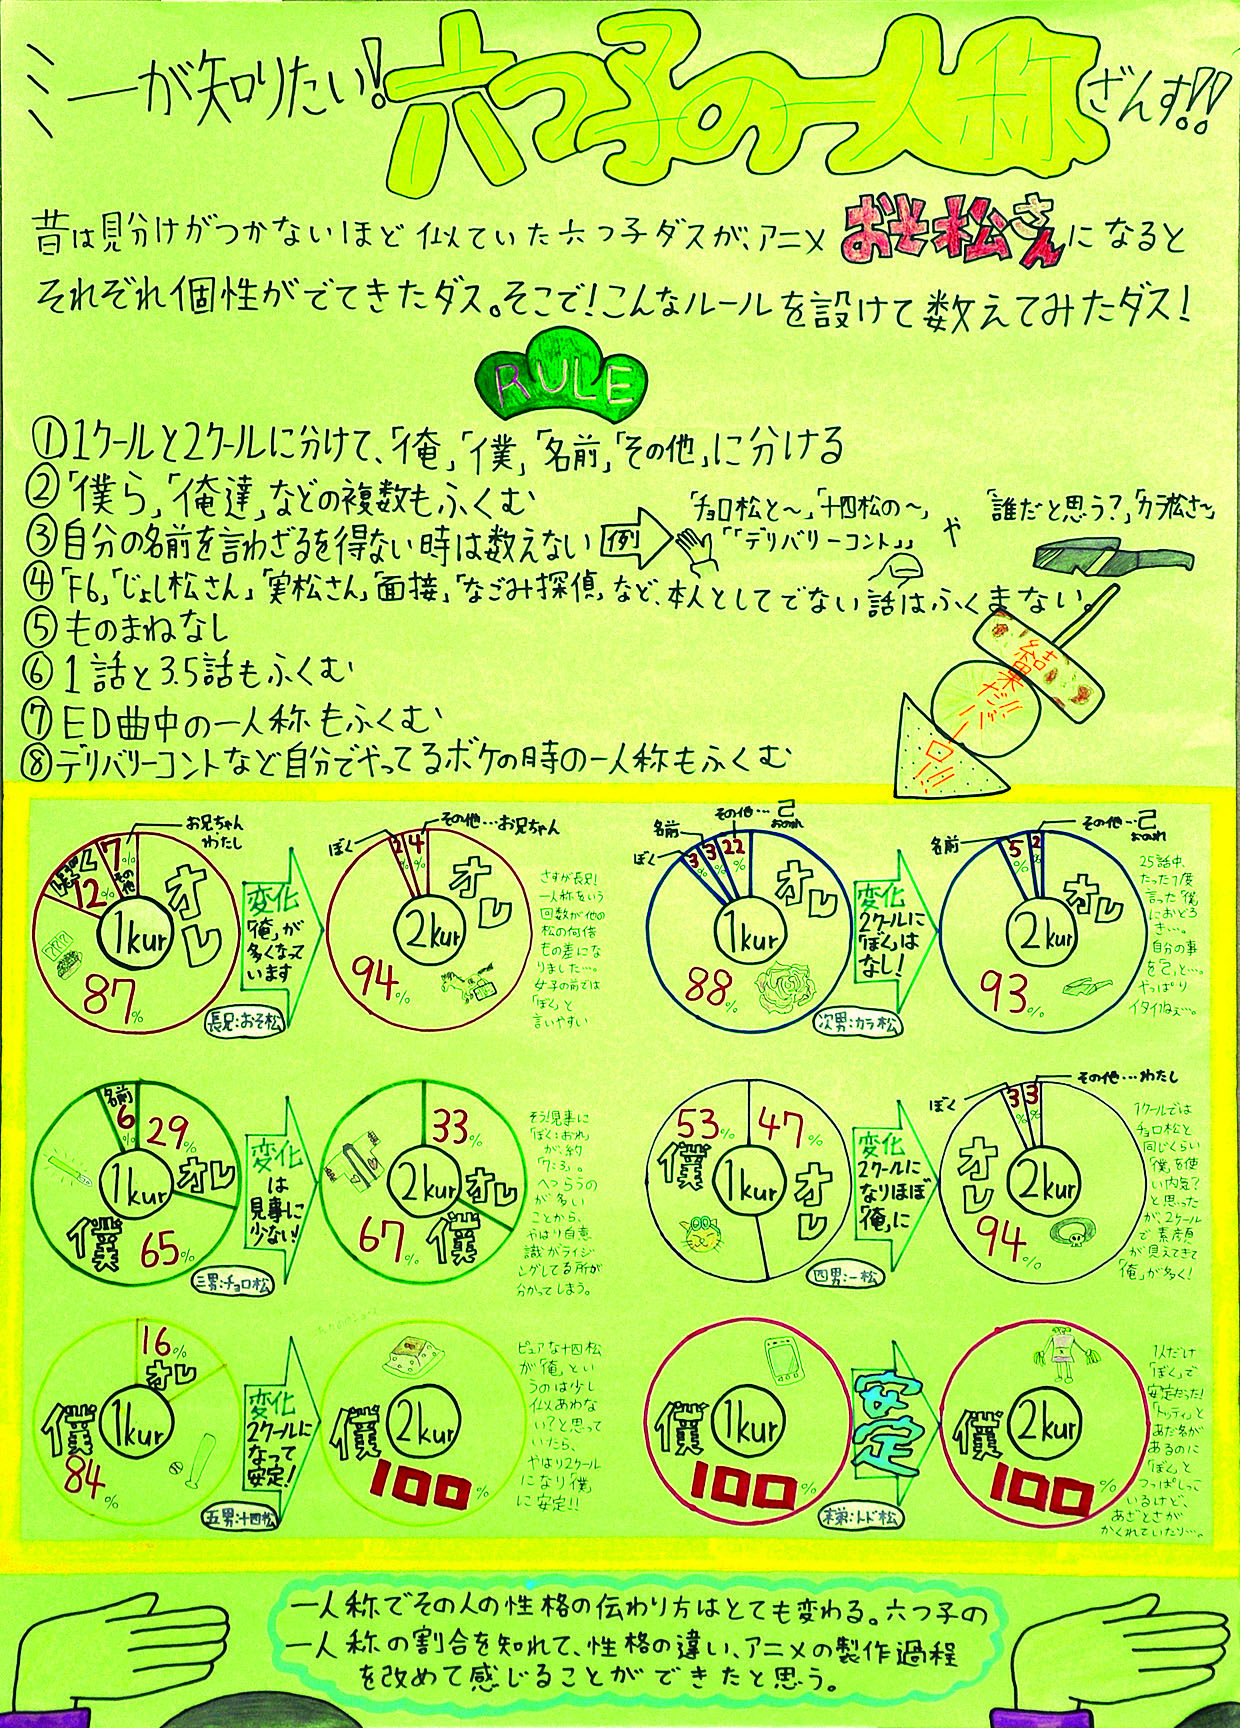 ミーが知りたい!六つ子の一人称ざんす!!
昔は見分けがつかないほど似ていた六つ子ダスが、アニメおそ松さんになると
それぞれ個性がでてきたダス。そこで!こんなルールを設けて数えてみたダス!
RULE
①1クールと2クールに分けて、「俺」「僕」「名前」「その他」に分ける
②「僕ら」「俺達」などの複数もふくむ
③自分の名前を言わざるを得ない時は数えない
例
「チョロ松と〜」「十四松の〜」
「「デリバリーコント」」
や
「誰だと思う?」「カラ松さ〜」
④「F6」「じょし松さん」「実松さん」「面接」「なごみ探偵」など、本人としてでない話はふくまない。
⑤ものまねなし
⑥1話と3.5話もふくむ
⑦ED曲中の一人称もふくむ
⑧デリバリーコントなど自分でやってるボケの時の一人称もふくむ
結果だバーロー!!
お兄ちゃん
わたし
7%
その他
12%
オレ
1kur
87%
変化
「俺」が
多くなって
います
長兄:おそ松
ぼく
その他…お兄ちゃん
2%
4%
オレ
2kur
94%
さすが長兄!
一人称をいう
回数が他の
松の何倍
もの差にな
りました…。
女子の前では
「ぼく」と
言いやすい
ぼく
名前
その他…己
おのれ
3%
3%
22%
オレ
1kur
88%
変化
2クールに
「ぼく」は
なし!
次男:カラ松
名前
その他…己
おのれ
5%
2%
オレ
2kur
93%
25話中、
たった1度
言った「僕」
におどろ
き…。
自分の事
を「己」と…。
やっぱり
イタイねぇ…。
名前
6%
29%
オレ
1kur
僕
65%
変化
は
見事に
少ない!
三男:チョロ松
33%
オレ
2kur
僕
67%
そう!見事に
「ぼく:おれ」
が、約
「7:3」。
へつらうの
が多い
ことから、
やはり自意
識がライジ
ングしてる所が
分かってしまう。
53%
僕
47%
オレ
1kur
変化
2クールに
なりほぼ
「俺」に
四男:一松
ぼく
その他…わたし
3%
3%
オレ
2kur
94%
1クールでは
チョロ松と
同じくらい
「僕」を使
い内気?
と思った
が、2クール
で素顔
が見えてきて
「俺」が多く!
16%
オレ
1kur
僕
84%
変化
2クールに
なって
安定!
五男:十四松
2kur
僕
100%
ピュアな十四松
が「俺」とい
うのは少し
似あわな
い?と思って
いたら、
やはり2クール
になり「僕」
に安定!!
1kur
僕
100%
安定
末弟:トド松
2kur
僕
100%
1人だけ
「ぼく」で
安定だった!
「トッティ」と
あだ名が
あるのに
「ぼく」と
つっぱしって
いるけど、
あざとさが
かくれていたり…。
一人称でその人の性格の伝わり方はとても変わる。六つ子の
一人称の割合を知れて、性格の違い、アニメの製作過程
を改めて感じることができたと思う。